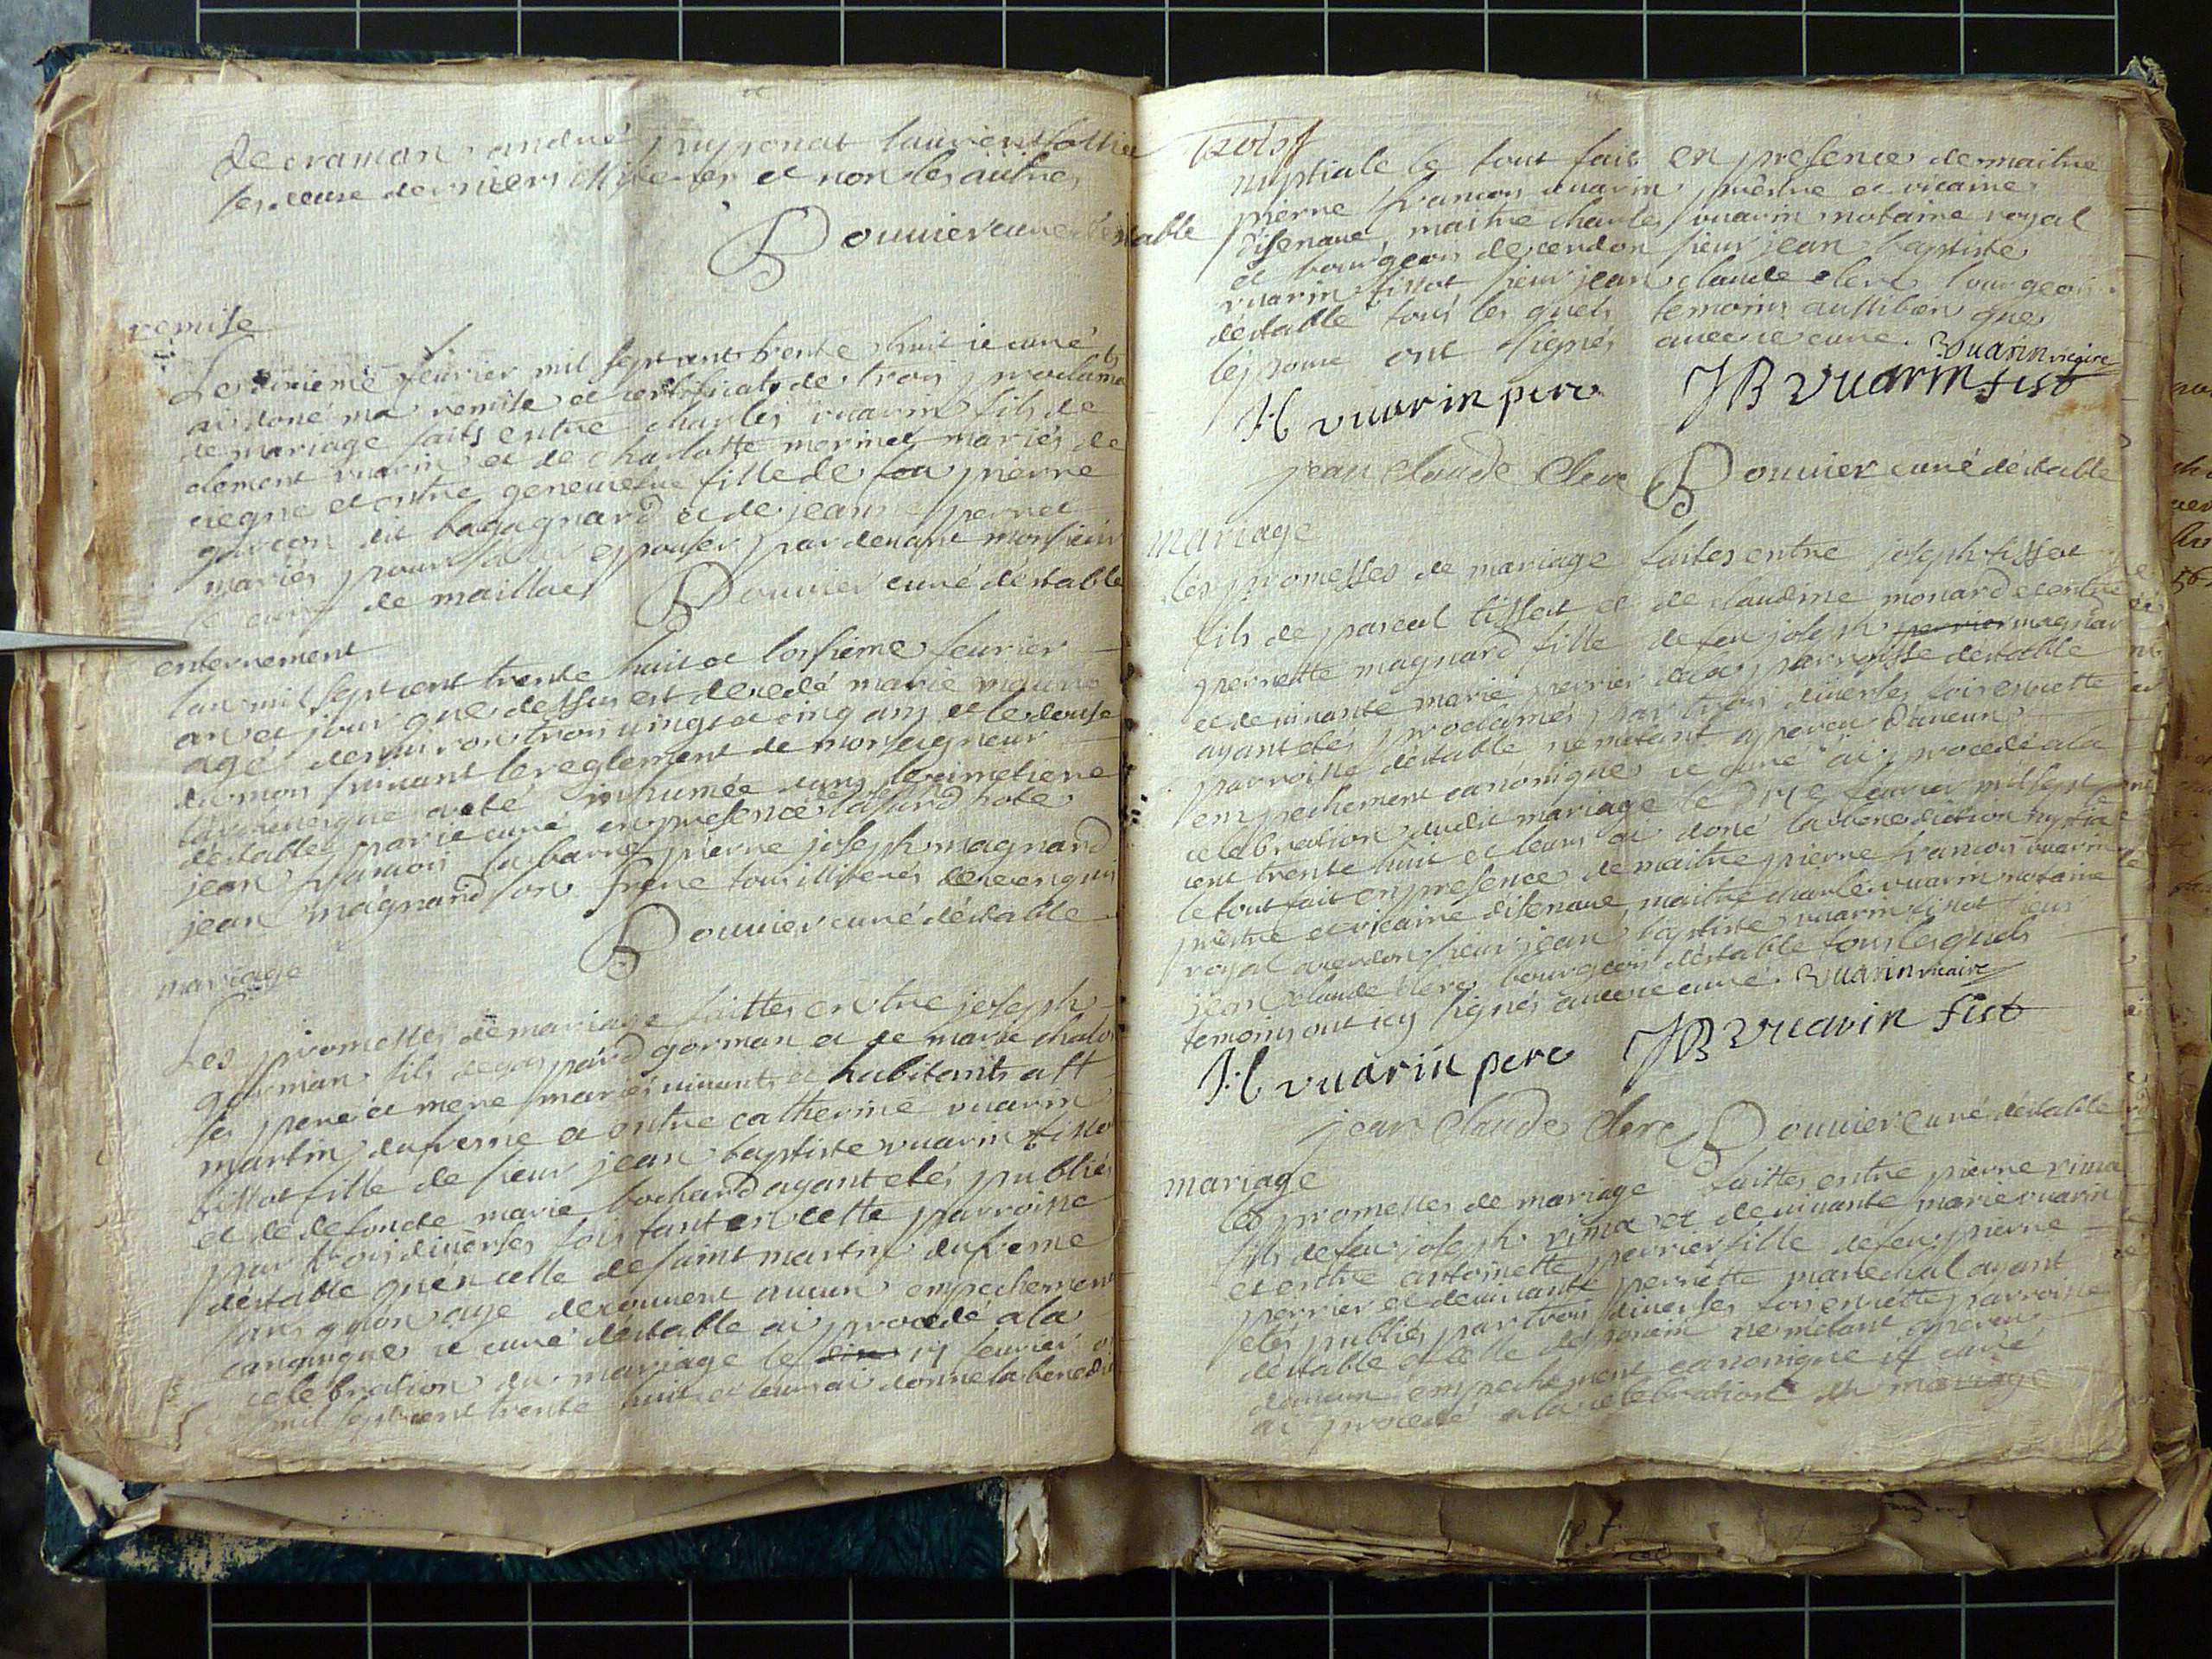 de craman andrué puyponat laurent
les ceux derniers et non les autres
Bouuier curé déstable
remise
Le fevrier mil sept cent trente huit ie curé
ai doné ma remise et certificats de trois proclama
de mariage faits entre charles vuarin fils de
clement vuarin et de charlotte mariés de
ciegne et entre fille de feu pierre
garcon dit bagagnard et de jeanne perret
mariés pour aller epouser pardeuant monsieur
le curé de maillac Bouuier curé déstable
enterrement
lan mil sept cent trente huit et lonsieme feurier
an et jour que dessus est decedé marie
agé denuiron trois uingt et cinq ans et le douse
du mois suiuant le reglement de monseigneur
larcheueque a eté inhumée dans le cimetiere
déstable par ie curé en presence de
jean francois la barre pierre joseph magnard
jean magnard son frere tous illiterés de ce enquis
Bouuier curé déstable
mariage
Les promesses de mariage faittes entre joseph
gorman fils de gaspard gorman et de marie
ses pere et mere mariés uiuants et habitants a st
martin dufresne et entre catherine vuarin
tissot fille de sieur jean baptiste vuarin tissot
et de defonte marie bochard ayant etés publiés
par trois diuerses fois tant en cette parroisse
déstable quen celle de saint martin dufresne
sans quon aye decouuert aucun empechement
canonique ie curé déstable ai procedé a la
celebration du mariage le 14 feurier
mil sept cent trente huit et leurs ai donne la benedic
nuptiale le tout fait en presence de maitre
pierre francois vuarin prêstre et vicaire
disenaue, maitre charles vuarin notaire royal
et bourgeois de cerdon sieur jean baptiste
vuarin tissot sieur jean claude clerc bourgeois
déstable tous les quels temoins aussibien que
lepoux ont signés auec ie curé. Vuarin vicaire
H vuarin pere JB Vuarin tisst
jean claude Clerc Bouuier curé déstable
mariage
Les promesses de mariage faites entre joseph tissot
fils de pascal tissot et de claudine monard et entre
pernette magnard fille de feu joseph perrier magnar
et de uiuante marie perrier de la parroisse déstable
ayant etés proclamés par trois diuerses fois en cette
parroisse déstable ne métant apercu daucun
empechement canonique ie curé ai procedé a la
celebration dudit mariage le feurier mil sept
cent trente huit et leurs ai doné la benediction nuptia
le tout fait en presence de maitre pierre francois vuarin
prêstre et vicaire disenaue, maitre charle vuarin notaire
royal a cerdon sieur jean baptiste vuarin tissot sieur
jean claude clerc bourgeois déstable tous lesquels
temoins ont icy signés auec ie curé. Vuarin vicaire
H vuarin pere JB Vuarin tisst
jean Claude Clerc Bouuier curé déstable
mariage
Les promesses de mariage faittes entre pierre rima
fils de feu joseph rima et de uiuante marie vuarin
et entre antoinette perrier fille de feu pierre
perrier et de uiuante pernette marechal ayant
etés publiés par trois diuerses fois en cette parroisse
déstable et celle de ne métant apercu
daucun empechement canonique ie curé
ai procedé a la celebration du mariage